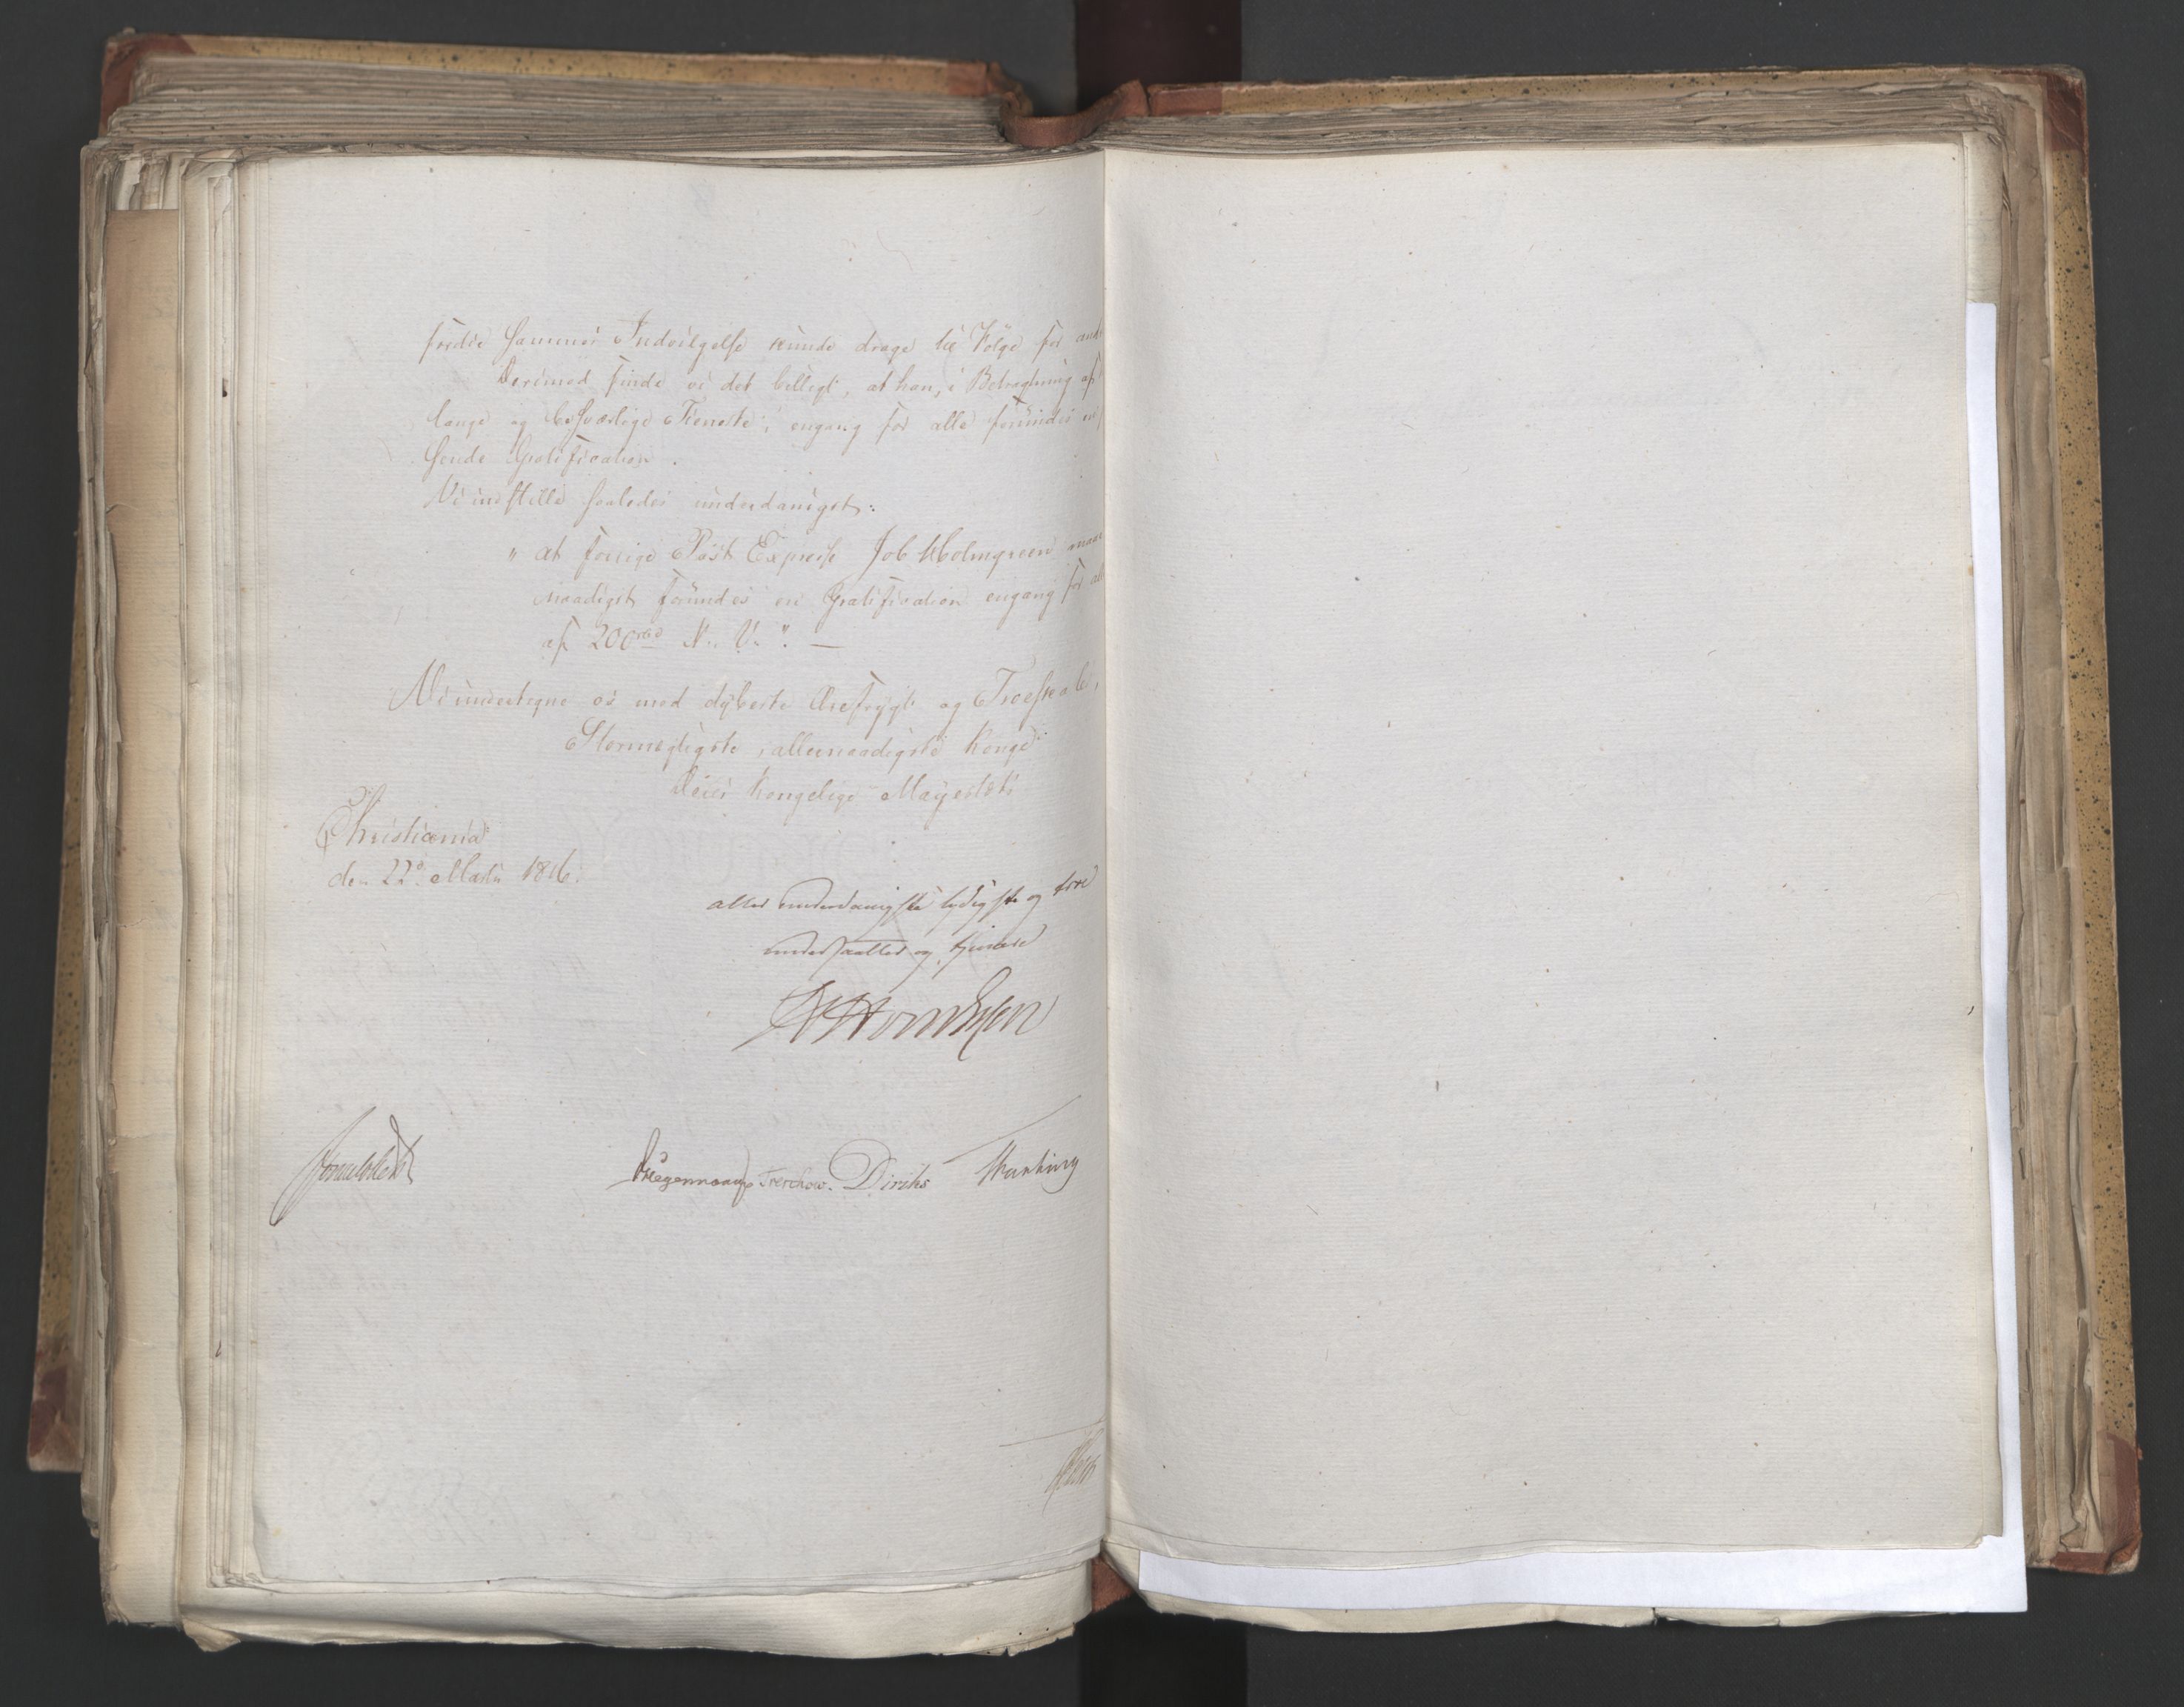 fordie sammes Indvilgelse kunde drage til Følge for and
Derimod finde vi det billigt, at han, i Betragtning af
lange og besværlige Tieneste, engang for alle forundes en
sende Gratification.
Vi indstille saaledes underdanigst:
" at forrige Post Expresse Job Holmgreen maae
naadigst forundes en Gratification engang for all
af 200 rbd N. V. ". —
Vi undertegne os med dybeste Ærefrygt og Troeskab,
Stormægtigste, allernaadigste Konge
Deres Kongelige Mayestæts
Christiania
den 22d Martii 1816.
aller underdanigste lydigste og troe
undersaatter og tjenere
Sommerhielm
Krogh
Treschow. Diriks